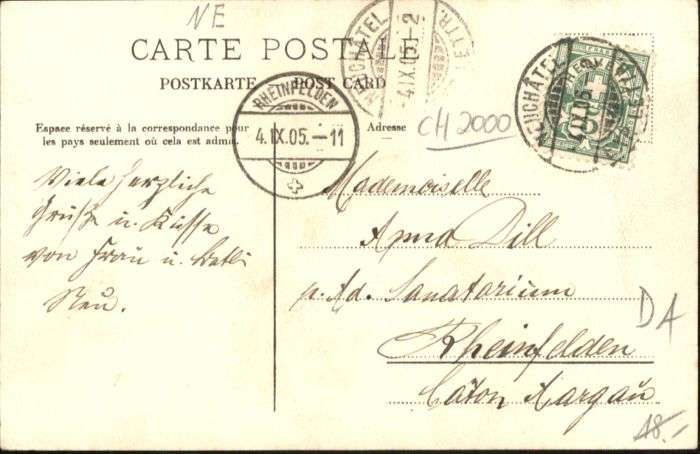 NE
CARTE POSTALE
POSTKARTE POST CARD
NEUCHÂTEL
4.IX.05.-2
LETTR.
RHEINFELDEN
4.IX.05.-11
Espace réservé à la correspondance pour
les pays seulement où cela est admis.
Adresse
CH 2000
NEUCHÂTEL
4.IX.05
Viele herzliche
Grüße u. Küsse
von Frau u. Betli
Neu.
Mademoiselle
Anna Dill
p. Ad. Sanatorium
Rheinfelden
Caton Aargau
DA
48.-